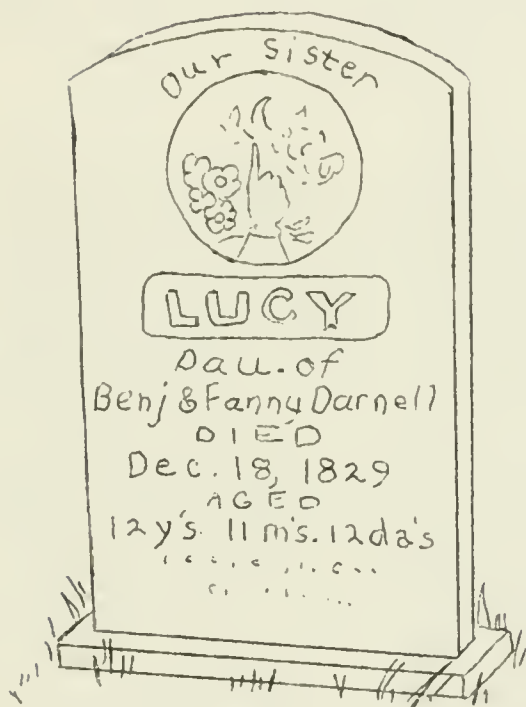 Our Sister
LUCY
Dau. of
Benj & Fanny Darnell
DIED
Dec. 18, 1829
AGED
12 y's. 11 m's. 12 da's